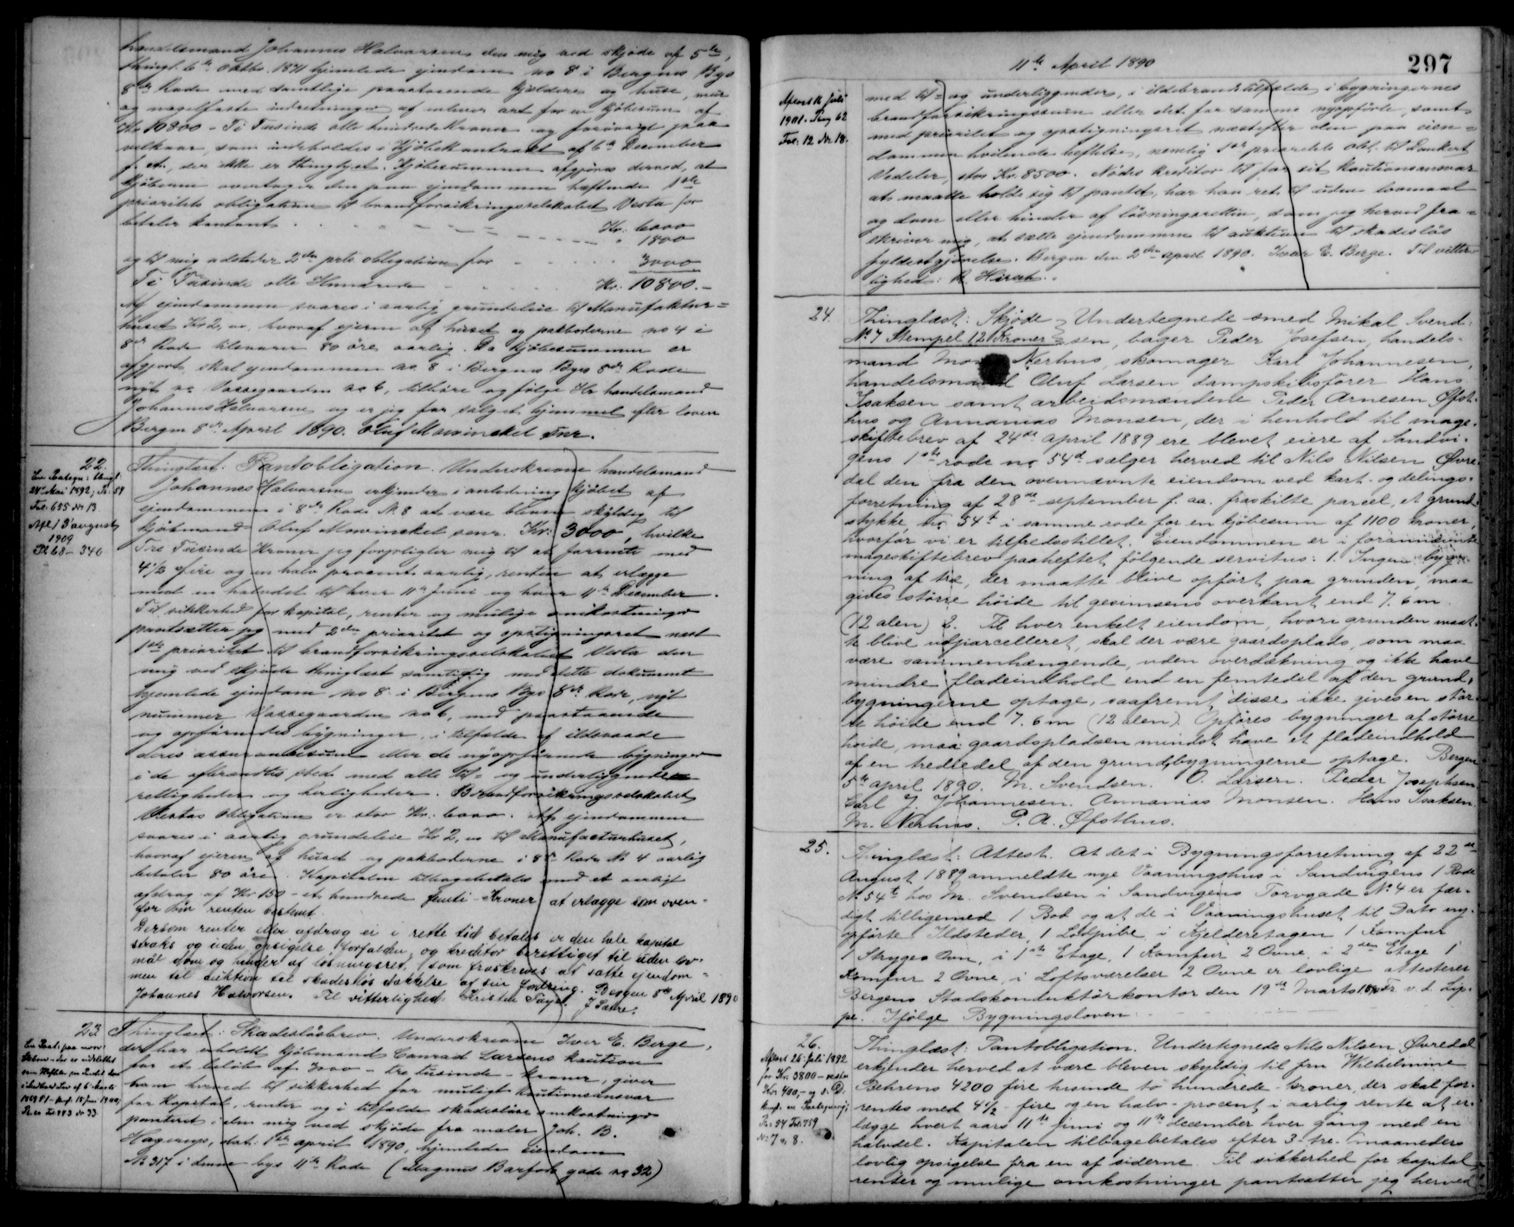 handelsmand Johannes Halvorsen den mig ved skjøde af 5te,
thingl. 6te Oktbr. 1871 hjemlede eiendom no 8 i Bergens Bys
8de Rode med samtlige paastaaende kjeldere og huse, mur
og nagelfaste indretninger af enhver art for en kjøbesum af
Kr 10800 - Ti Tusinde otte hundrede Kroner og forøvrigt paa
vilkaar, som indeholdes i Kjøbekontrakt af 6te December
f. A., der ikke er thinglyst. Kjøbesummen afgjøres derved, at
Kjøberen overtager den paa eiendommen heftende 1ste
prioritets obligation til brandforsikringsselskabet Vesta for
Kr. 6000
betaler kontant " 1800
og til mig udsteder 2den prts obligation for 3000
Ti Tusinde otte Hundrede Kr. 10800.-
Af eiendommen svares i aarlig grundleie til Manufaktur=
huset Kr 2, 00, hvoraf eieren af huset og pakboderne no 4 i
8de Rode tilsvarer 80 øre aarlig. Da kjøbesummen er
afgjort, skal eiendommen no 8 i Bergens Bys 8de Rode
nyt no Vaskegaarden no 6, tilhøre og følge Hr handelsmand
Johannes Halvorsen og er jeg for salget hjemmel efter loven
Bergen 8de April 1890. Oluf Mowinckel Snr.
22.
24de Mai 1892, Pr 59
Fol. 655 No 13
Afl. 13 august
1909
Pb 68 - 346
Thinglæst: Pantobligation. Underskrevne handelsmand
Johannes Halvorsen erkjender i anledning kjøbet af
eiendommen i 8de Rode No 8 at være bleven skyldig til
kjøbmand Oluf Mowinckel senr. Kr. 3000, hvilke
Tre Tusinde Kroner jeg forpligter mig til at forrente med
4 1/2 fire og en halv procent aarlig, renten at erlægge
med en halvdel til hver 11te Juni og hver 11te December.
Til sikkerhed for kapital, renter og mulige omkostninger
pantsætter jeg med 2den prioritet og opstigningsret næst
1ste prioritet til brandforsikringsselskabet Vesta den
mig ved skjøde thinglæst samtidig med dette dokument
hjemlede eiendom no 8 i Bergens Bys 8de Rode, nyt
nummer Vaskegaarden no 6, med paastaaende
og opførendes bygninger, i tilfælde af ildsvaade
deres assurancesum eller de nyopførende bygninger
i de afbrændtes sted med alle til= og underliggende
rettigheder og herligheder. Brandforsikringsselskabet
Vestas obligation er stor Kr. 6000. Af eiendommen
svares i aarlig grundleie Kr 2, 00 til Manufacturhuset,
hvoraf eieren af huset og pakboderne i 8de Rode No 4 aarlig
betaler 80 øre. Kapitalen tilbagebetales med et aarligt
afdrag af Kr 150 - et hundrede femti - Kroner at erlægge som oven=
for om renter bestemt.
Dersom renter eller afdrag ei i rette tid betales er den hele kapital
straks og uden opsigelse forfalden, og kreditor berettiget til uden lov=
maal dom og hinder af løsningsret, som fraskrives at sætte eiendom=
men til auktion til skadesløs dækkelse af sin fordring. Bergen 8de April 1890
Johannes Halvorsen. Til vitterlighed: Kristen
23.
Thinglæst: Skadesløsbrev. Underskrevne Iver E. Berge,
der har erholdt kjøbmand Conrad Larsens kaution
for et beløb af 3000 - tre tusinde - kroner, giver
ham herved til sikkerhed for muligt kautionsansvar
for kapital, renter og i tilfælde skadesløse omkostninger
panteret i den mig ved skjøde fra maler Joh. B.
Hagerup, dat. 1ste april 1890, hjemlede eiendom
No 317 i denne bys 11te Rode (Magnus Barfods gade no 32)
11te April 1890
297
Aflæst 11 Juli
1901. Prg 62
Fol. 12 No 18.
med til= og underliggender, i ildebrandstilfælde i bygningernes
brandforsikringssum eller det for samme nyopførte, samt
med prioritet og opstigningsret næstefter den paa eien=
dommen hvilende heftelse, nemlig 1ste prioritets obl. til Dankert
Vedeler, stor Kr. 8500. Nødes kreditor til for sit kautionsansvar
at maatte holde sig til pantet, har han ret til uden lovmaal
og dom eller hinder af løsningsretten, som jeg herved fra=
skriver mig, at sætte eiendommen til auktion til skadesløs
fyldestgjørelse. Bergen den 2den april 1890. Iver E. Berge. Til vitter=
lighed: R. Hirsch.
24.
Thinglæst: Skjøde
No 7 Stempel 12 Kroner
Undertegnede smed Mikal Svend=
sen, bager Peder Josefsen, handels=
mand Mons Nerhus, skomager Karl Johannesen,
handelsmand Oluf Larsen dampskibsfører Hans
Isaksen samt arbeidsmændene Peder Arnesen Øfst=
hus og Annanias Monsen, der i henhold til mage=
skiftebrev af 24de april 1889 ere blevet eiere af Sandvi=
gens 1ste rode no 54d sælger herved til Nils Nilsen Øvre=
dal den fra den ovennævnte eiendom ved kart- og delings=
forretning af 28de september f. aa. fraskilte parcel, et grund=
stykke no 54t i samme rode for en kjøbesum af 1100 kroner,
hvorfor vi er tilfredsstillet. Eiendommen er i forannævnte
mageskiftebrev paaheftet følgende servitus: 1. Ingen byg=
ning af træ, der maatte blive opført paa grunden, maa
gives større høide til gesimsens overkant end 7. 6 m.
(12 alen) 2. Til hver enkelt eiendom, hvori grunden maat=
te blive udparcelleret, skal der være gaardsplads, som maa
være sammenhængende, uden overdækning og ikke have
mindre fladeindhold end en femtedel af den grund,
bygningerne optage, saafremt disse ikke gives en stør=
re høide end 7. 6 m (12 alen). Opføres bygninger af større
høide, maa gaardspladsen mindst have et fladeindhold
af en trediedel af den grund, bygningerne optage. Bergen
5te april 1890. M. Svendsen. O Larsen. Peder Josephsen
Karl J. Johannesen. Annanias Monsen. Hans Isaksen
M. Nerhus. P. A. Øfsthus.
25.
Thinglæst: Attest. At det i Bygningsforretning af 22de
August 1889 anmeldte nye Vaaningshus i Sandvigens 1 Rode
No 54t hos M. Svendsen i Sandvigens Torvgade No 4 er fær=
digt tilligemed 1 Bod og at de i Vaaningshuset til Dato ny=
opførte Ildsteder, 1 Ladpibe i Kjelderetagen 1 Komfur
1 Strygeovn, i 1ste Etage, 1 Komfur 2 Ovne, i 2den Etage 1
Komfur 2 Ovne, i Loftsværelser 2 Ovne er lovlige attesteres
Bergens Stadskonduktørkontor den 19de Marts 1890
Ifølge Bygningsloven.
26.
Aflæst 26 Juli 1892
for Kr. 3800
Thinglæst: Pantobligation. Undertegnede Nils Nilsen Øvredal
erkjender herved at være bleven skyldig til fru Wilhelmine
Behrens 4200 fire tusinde to hundrede - kroner, der skal for=
rentes med 4 1/2 - fire og en halv - procent i aarlig rente at er=
lægge hvert aars 11te Juni og 11te december hver gang med en
halvdel. Kapitalen tilbagebetales efter 3 - tre - maaneders
lovlig opsigelse fra en af siderne. Til sikkerhed for kapital,
renter og mulige omkostninger pantsætter jeg herved